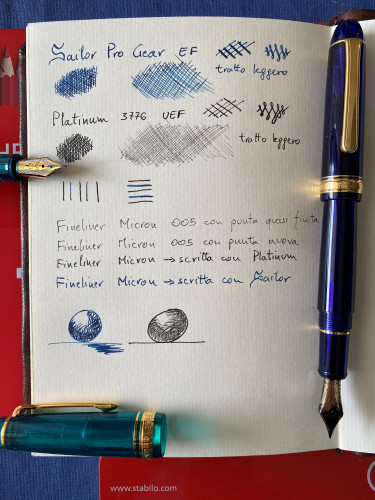 Sailor Pro Gear EF
tratto leggero
Platinum 3776 UEF
tratto leggero
Fineliner Micron 005 con punta quasi finita
Fineliner Micron 005 con punta nuova
Fineliner Micron → scritta con Platinum
Fineliner Micron → scritta con Sailor
www.stabilo.com